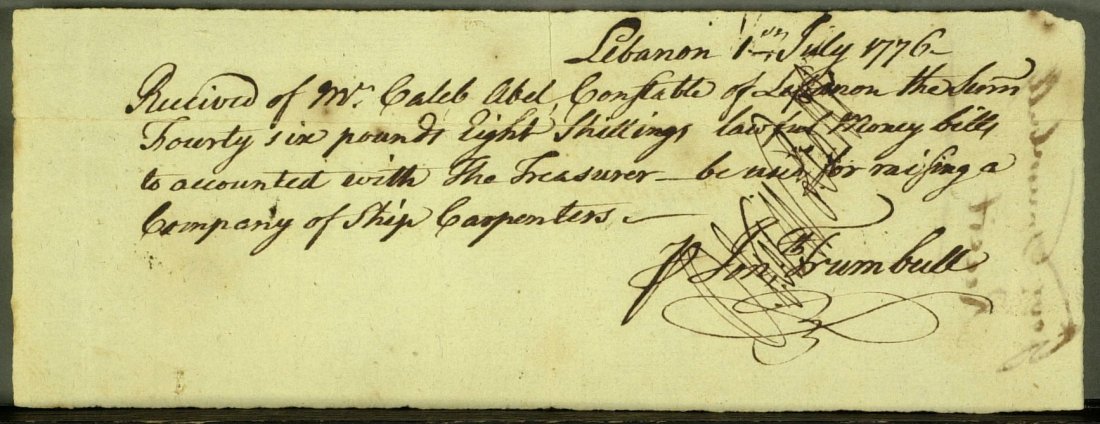 Lebanon 1st July 1776
Received of Mr. Caleb Abel, Constable of Lebanon the Sum
Fourty six pounds Eight Shillings lawful Money bills
to accounted with the Treasurer — be used for raising a
Company of Ship Carpenters —
P Jonth Trumbull